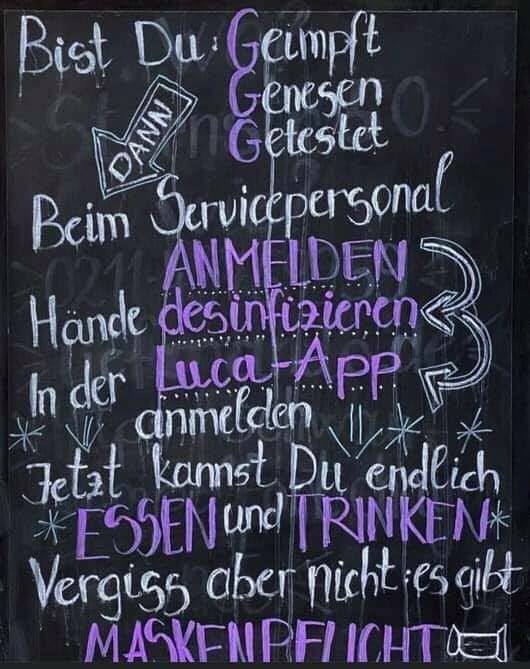 Bist Du: Geimpft
Genesen
Getestet
DANN
Beim Servicepersonal
ANMELDEN
Hände desinfizieren
In der Luca-App
anmelden
Jetzt kannst Du endlich
ESSEN und TRINKEN
Vergiss aber nicht: es gibt
MASKENPFLICHT